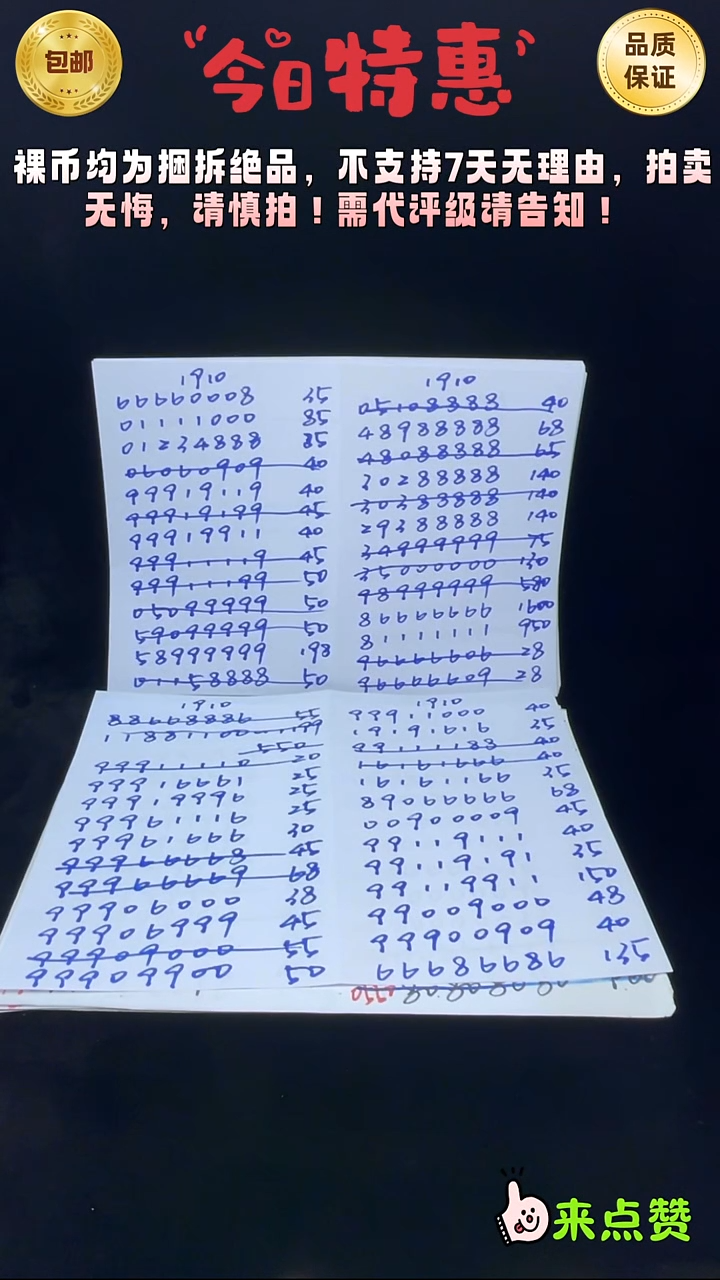 包邮
今日特惠
品质
保证
裸币均为捆拆绝品，不支持7天无理由，拍卖
无悔，请慎拍！需代评级请告知！
1910
66660008 35
01111000 85
01234888 85
06060909 40
99919119 40
99919199 45
99919911 40
99911119 45
99911199 50
05099999 50
59099999 50
58999999 198
01158888 50
1910
05108888 40
48988888 68
48088888 65
30288888 140
30388888 140
29388888 140
34999999 75
35000000 130
98999999 580
86666666 1600
81111111 950
96666606 28
96666609 28
1910
88668886 55
11881100 1199
550
99911110 20
99916661 25
99919996 25
99961116 25
99961666 30
99966668 45
99966669 68
99906000 38
99906999 45
99909000 55
99909900 50
1910
99911000 40
19191616 35
99111188 40
16161666 40
16161166 35
89066666 68
00900009 45
99119111 40
99119191 35
99119911 150
99009000 48
99900909 40
66686686 135
来点赞